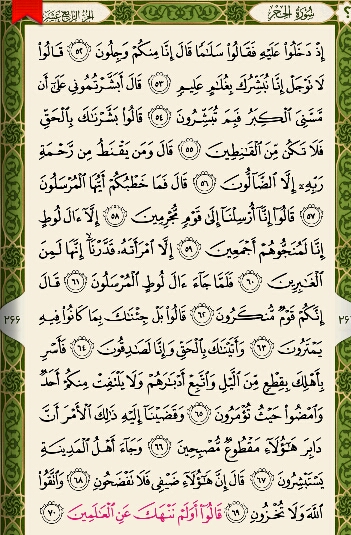 سورة الحجر
الجزء الرابع عشر
إِذْ دَخَلُوا۟ عَلَيْهِ فَقَالُوا۟ سَلَٰمًا قَالَ إِنَّا مِنكُمْ وَجِلُونَ ﴿٥٢﴾ قَالُوا۟
لَا تَوْجَلْ إِنَّا نُبَشِّرُكَ بِغُلَٰمٍ عَلِيمٍ ﴿٥٣﴾ قَالَ أَبَشَّرْتُمُونِى عَلَىٰٓ أَن
مَّسَّنِىَ ٱلْكِبَرُ فَبِمَ تُبَشِّرُونَ ﴿٥٤﴾ قَالُوا۟ بَشَّرْنَٰكَ بِٱلْحَقِّ
فَلَا تَكُن مِّنَ ٱلْقَٰنِطِينَ ﴿٥٥﴾ قَالَ وَمَن يَقْنَطُ مِن رَّحْمَةِ
رَبِّهِۦٓ إِلَّا ٱلضَّآلُّونَ ﴿٥٦﴾ قَالَ فَمَا خَطْبُكُمْ أَيُّهَا ٱلْمُرْسَلُونَ
﴿٥٧﴾ قَالُوٓا۟ إِنَّآ أُرْسِلْنَآ إِلَىٰ قَوْمٍ مُّجْرِمِينَ ﴿٥٨﴾ إِلَّآ ءَالَ لُوطٍ
إِنَّا لَمُنَجُّوهُمْ أَجْمَعِينَ ﴿٥٩﴾ إِلَّا ٱمْرَأَتَهُۥ قَدَّرْنَآ إِنَّهَا لَمِنَ
ٱلْغَٰبِرِينَ ﴿٦٠﴾ فَلَمَّا جَآءَ ءَالَ لُوطٍ ٱلْمُرْسَلُونَ ﴿٦١﴾ قَالَ
إِنَّكُمْ قَوْمٌ مُّنكَرُونَ ﴿٦٢﴾ قَالُوا۟ بَلْ جِئْنَٰكَ بِمَا كَانُوا۟ فِيهِ
يَمْتَرُونَ ﴿٦٣﴾ وَأَتَيْنَٰكَ بِٱلْحَقِّ وَإِنَّا لَصَٰدِقُونَ ﴿٦٤﴾ فَأَسْرِ
بِأَهْلِكَ بِقِطْعٍ مِّنَ ٱلَّيْلِ وَٱتَّبِعْ أَدْبَٰرَهُمْ وَلَا يَلْتَفِتْ مِنكُمْ أَحَدٌ
وَٱمْضُوا۟ حَيْثُ تُؤْمَرُونَ ﴿٦٥﴾ وَقَضَيْنَآ إِلَيْهِ ذَٰلِكَ ٱلْأَمْرَ أَنَّ
دَابِرَ هَٰٓؤُلَآءِ مَقْطُوعٌ مُّصْبِحِينَ ﴿٦٦﴾ وَجَآءَ أَهْلُ ٱلْمَدِينَةِ
يَسْتَبْشِرُونَ ﴿٦٧﴾ قَالَ إِنَّ هَٰٓؤُلَآءِ ضَيْفِى فَلَا تَفْضَحُونِ ﴿٦٨﴾ وَٱتَّقُوا۟
ٱللَّهَ وَلَا تُخْزُونِ ﴿٦٩﴾ قَالُوٓا۟ أَوَلَمْ نَنْهَكَ عَنِ ٱلْعَٰلَمِينَ ﴿٧٠﴾
٢٦٦